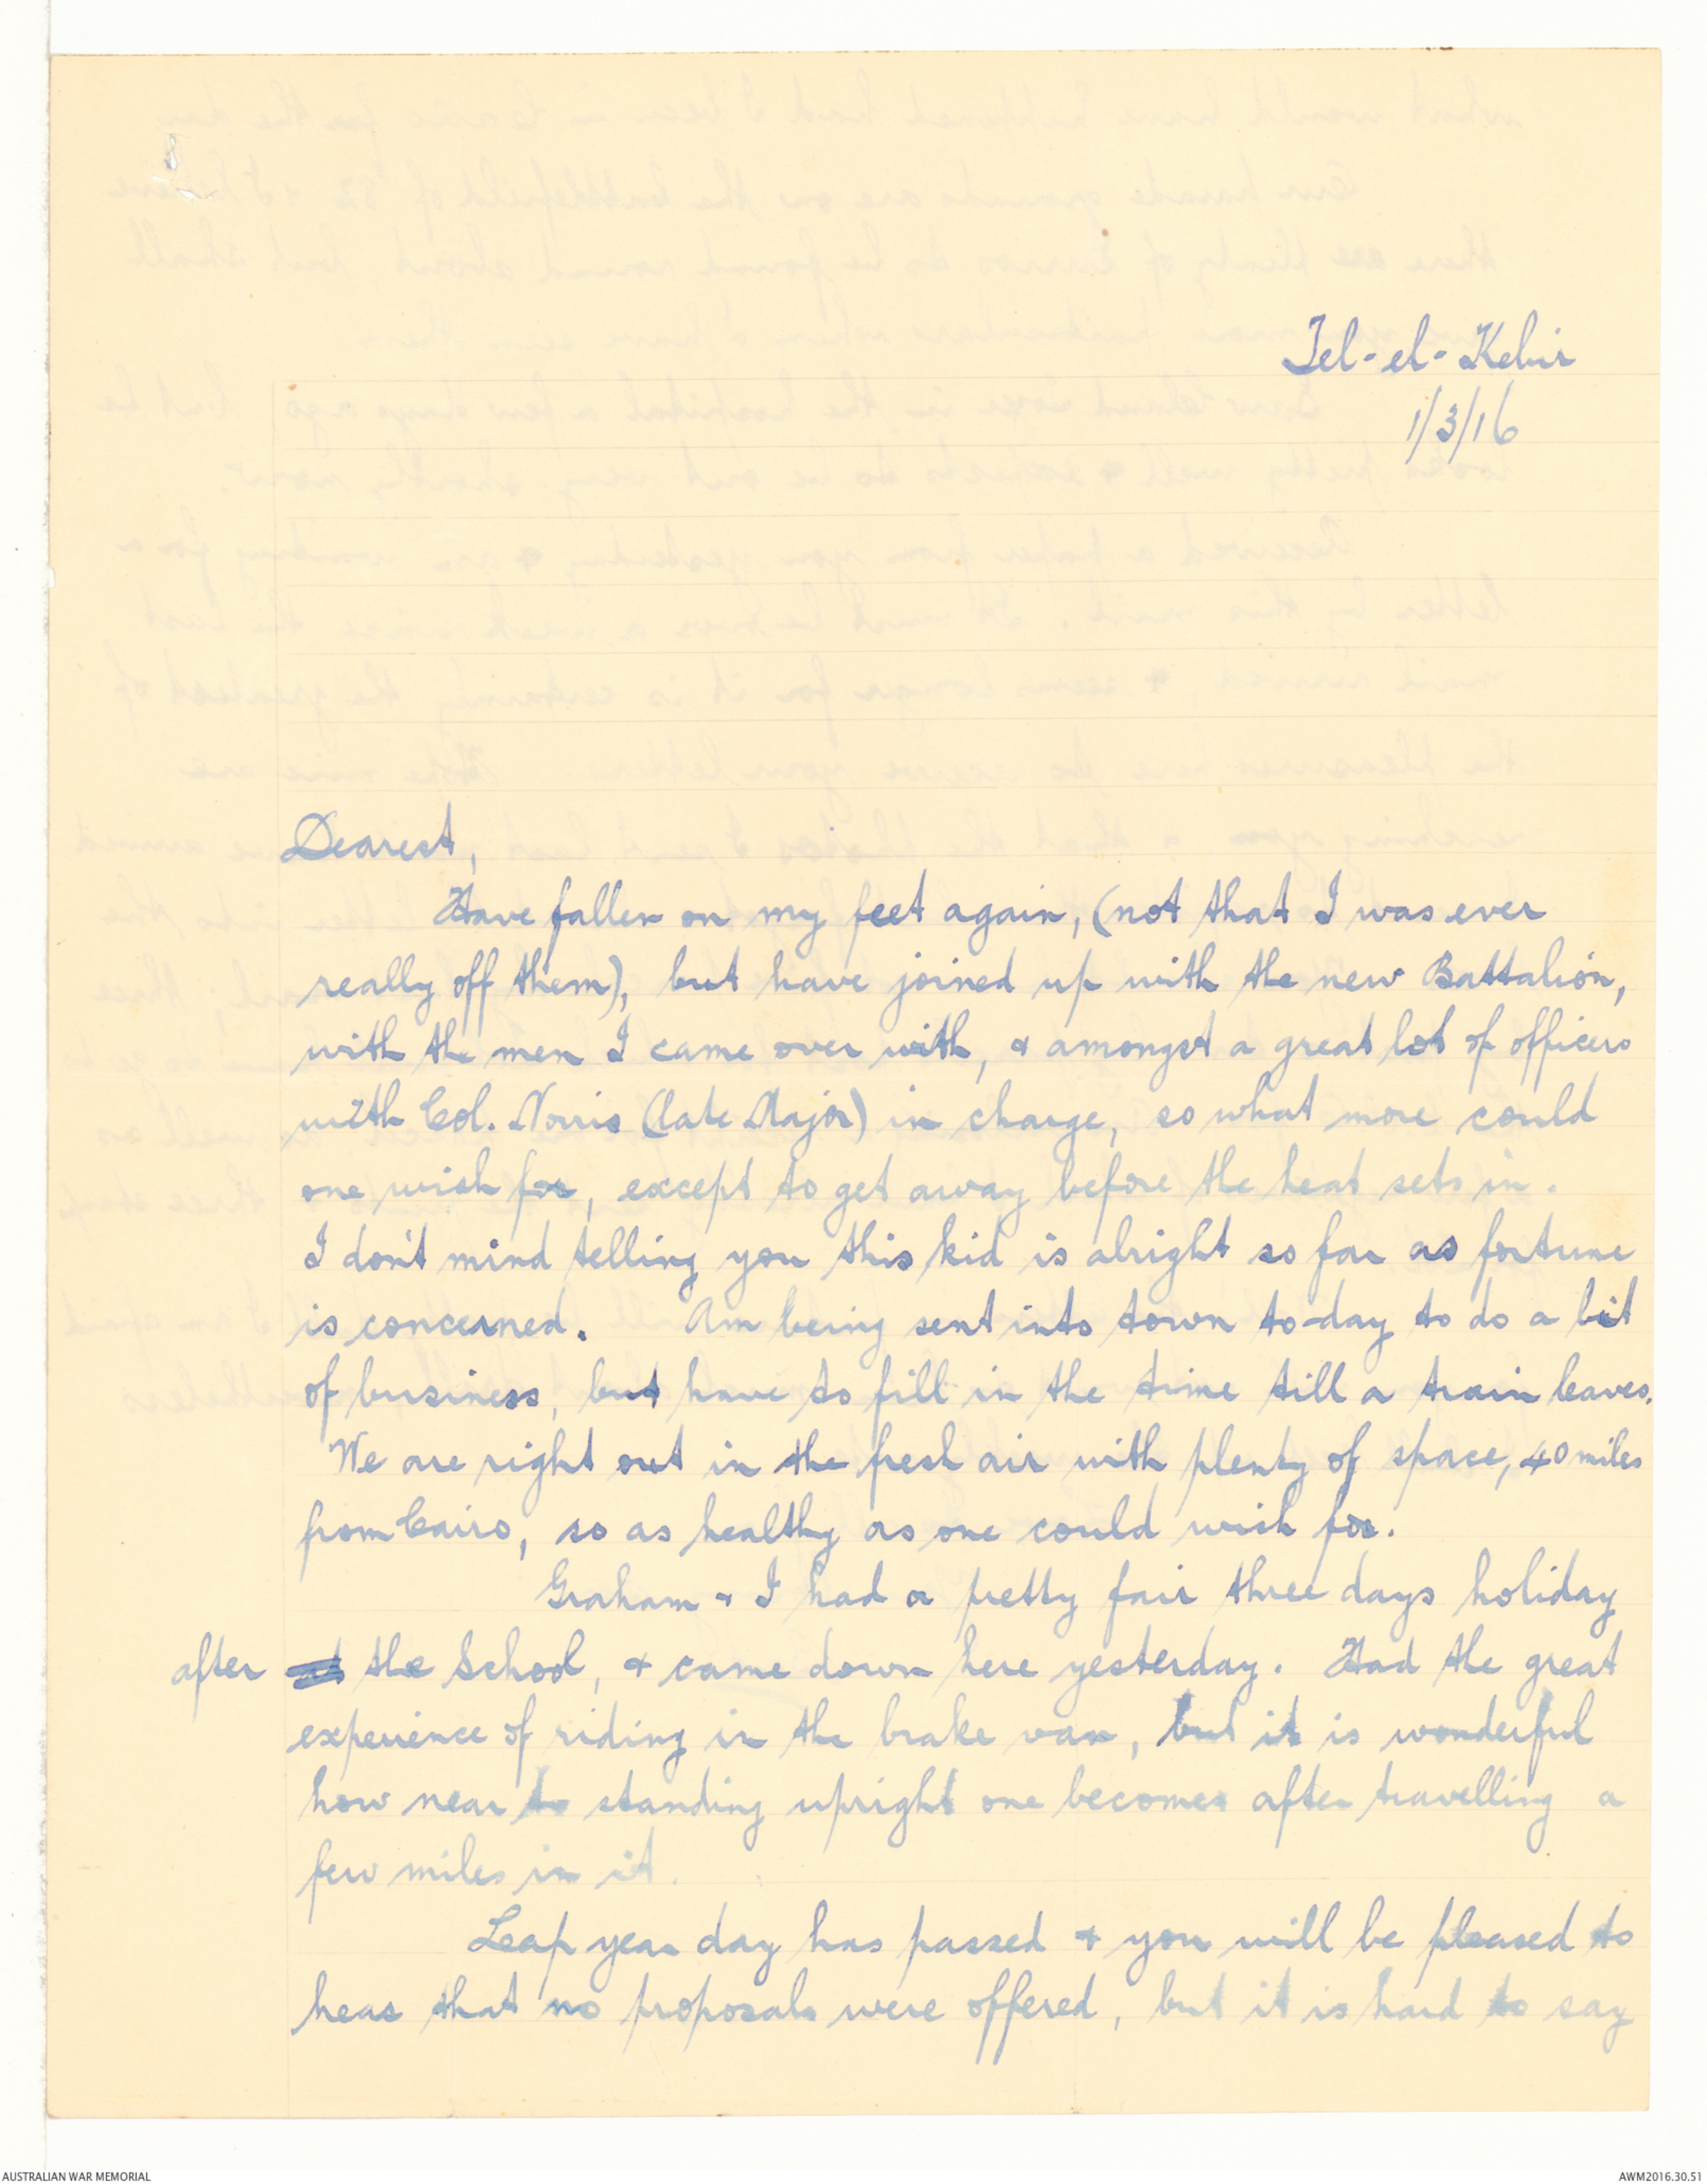 Tel-el-Kebir
1/3/16
Dearest,
Have fallen on my feet again, (not that I was ever
really off them), but have joined up with the new Battalion,
with the men I came over with, & amongst a great lot of officers
with Col. Norris (late Major) in charge, so what more could
one wish for, except to get away before the heat sets in.
I don't mind telling you this kid is alright so far as fortune
is concerned. Am being sent into town to-day to do a bit
of business, but have to fill in the time till a train leaves.
We are right out in the fresh air with plenty of space, 40 miles
from Cairo, so as healthy as one could wish for.
Graham & I had a pretty fair three days holiday
after the School, & came down here yesterday. Had the great
experience of riding in the brake van, but it is wonderful
how near to standing upright one becomes after travelling a
few miles in it.
Leap year day has passed & you will be pleased to
hear that no proposals were offered, but it is hard to say
AUSTRALIAN WAR MEMORIAL
AWM2016.30.51